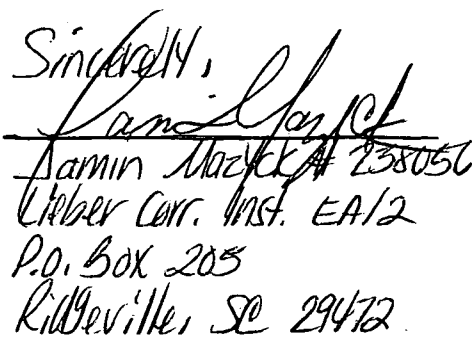 Sincerely,
Jamin Mazyck
Jamin Mazyck # 238050
Lieber Corr. Inst. EA/2
P.O. Box 205
Ridgeville, SC 29472